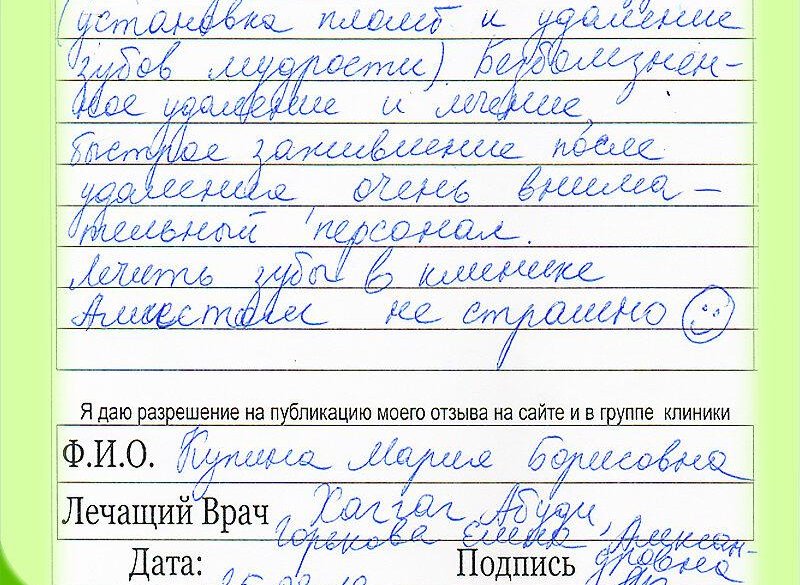 (установка пломб и удаление
зубов мудрости) Безболезнен-
ное удаление и лечение,
быстрое заживление после
удаления очень внима-
тельный персонал.
Лечить зубы в клинике
не страшно
Я даю разрешение на публикацию моего отзыва на сайте и в группе клиники
Ф.И.О. Купина Мария Борисовна
Лечащий Врач Хаггаг Абуди,
Горькова Елена Алексан-
дровна
Дата: Подпись